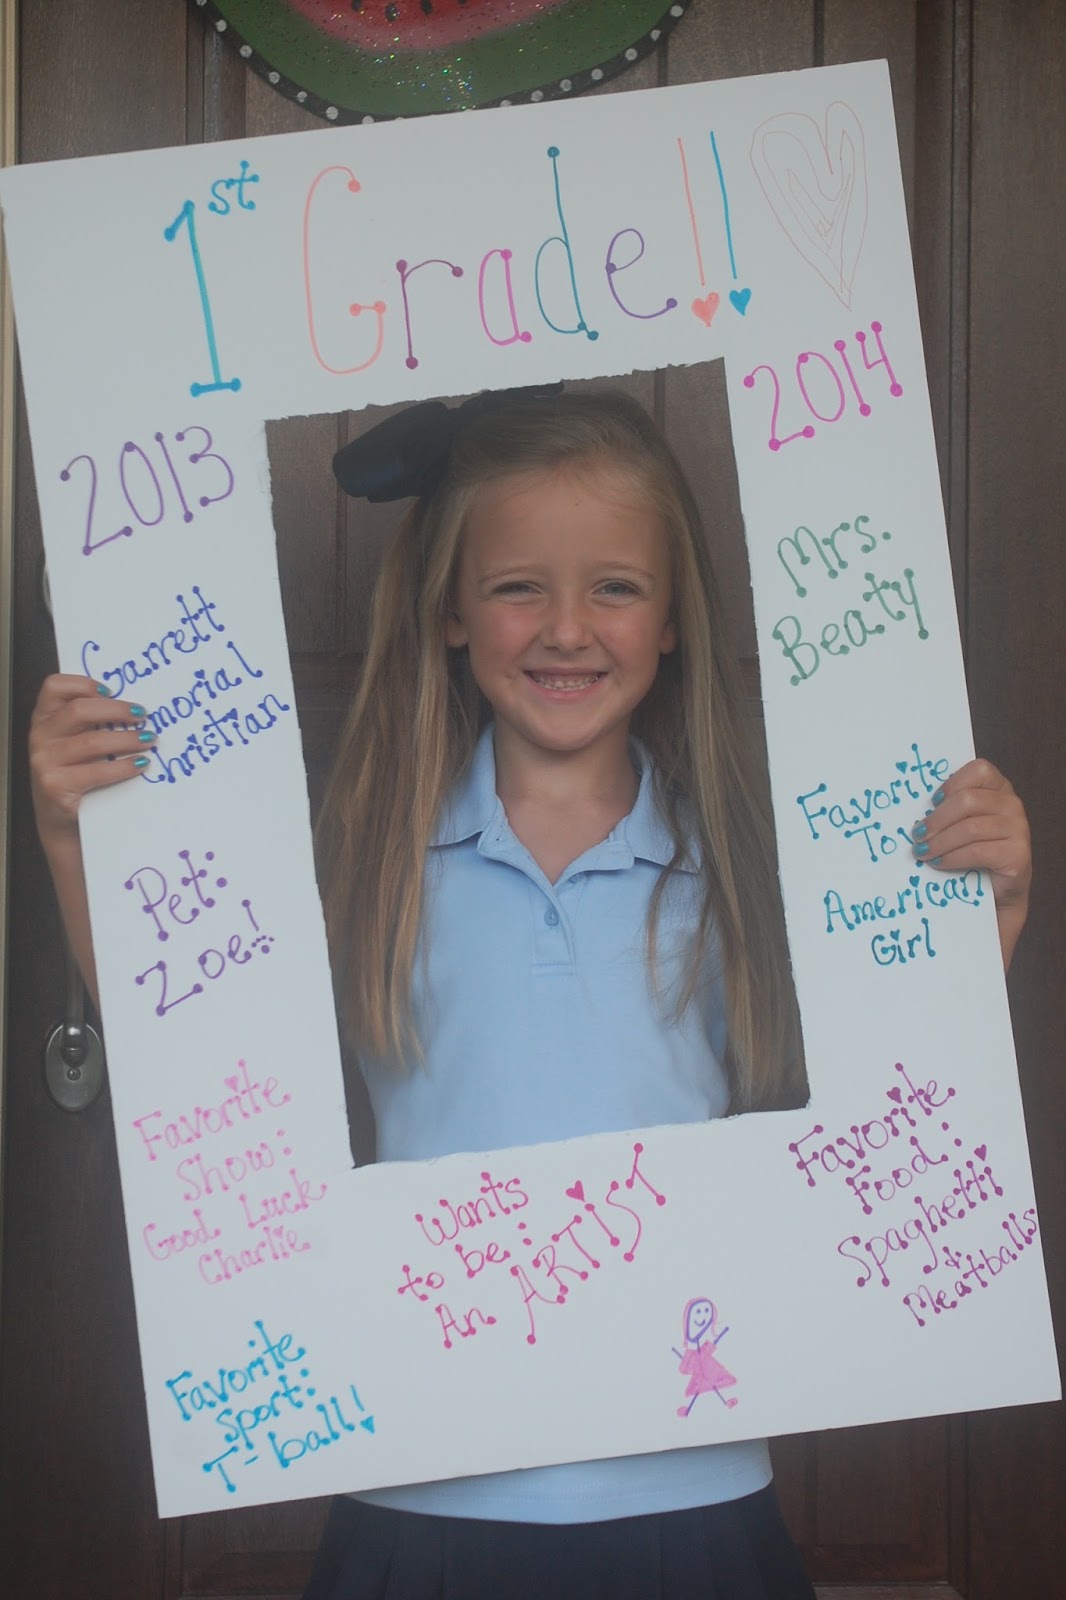 1st Grade!!
2013
2014
Garrett
Memorial
Christian
Mrs.
Beaty
Pet:
Zoe!
Favorite
Toy:
American
Girl
Favorite
Show:
Good Luck
Charlie
Wants
to be:
An ARTIST
Favorite
Food:
Spaghetti
&
Meatballs
Favorite
Sport:
T-ball!